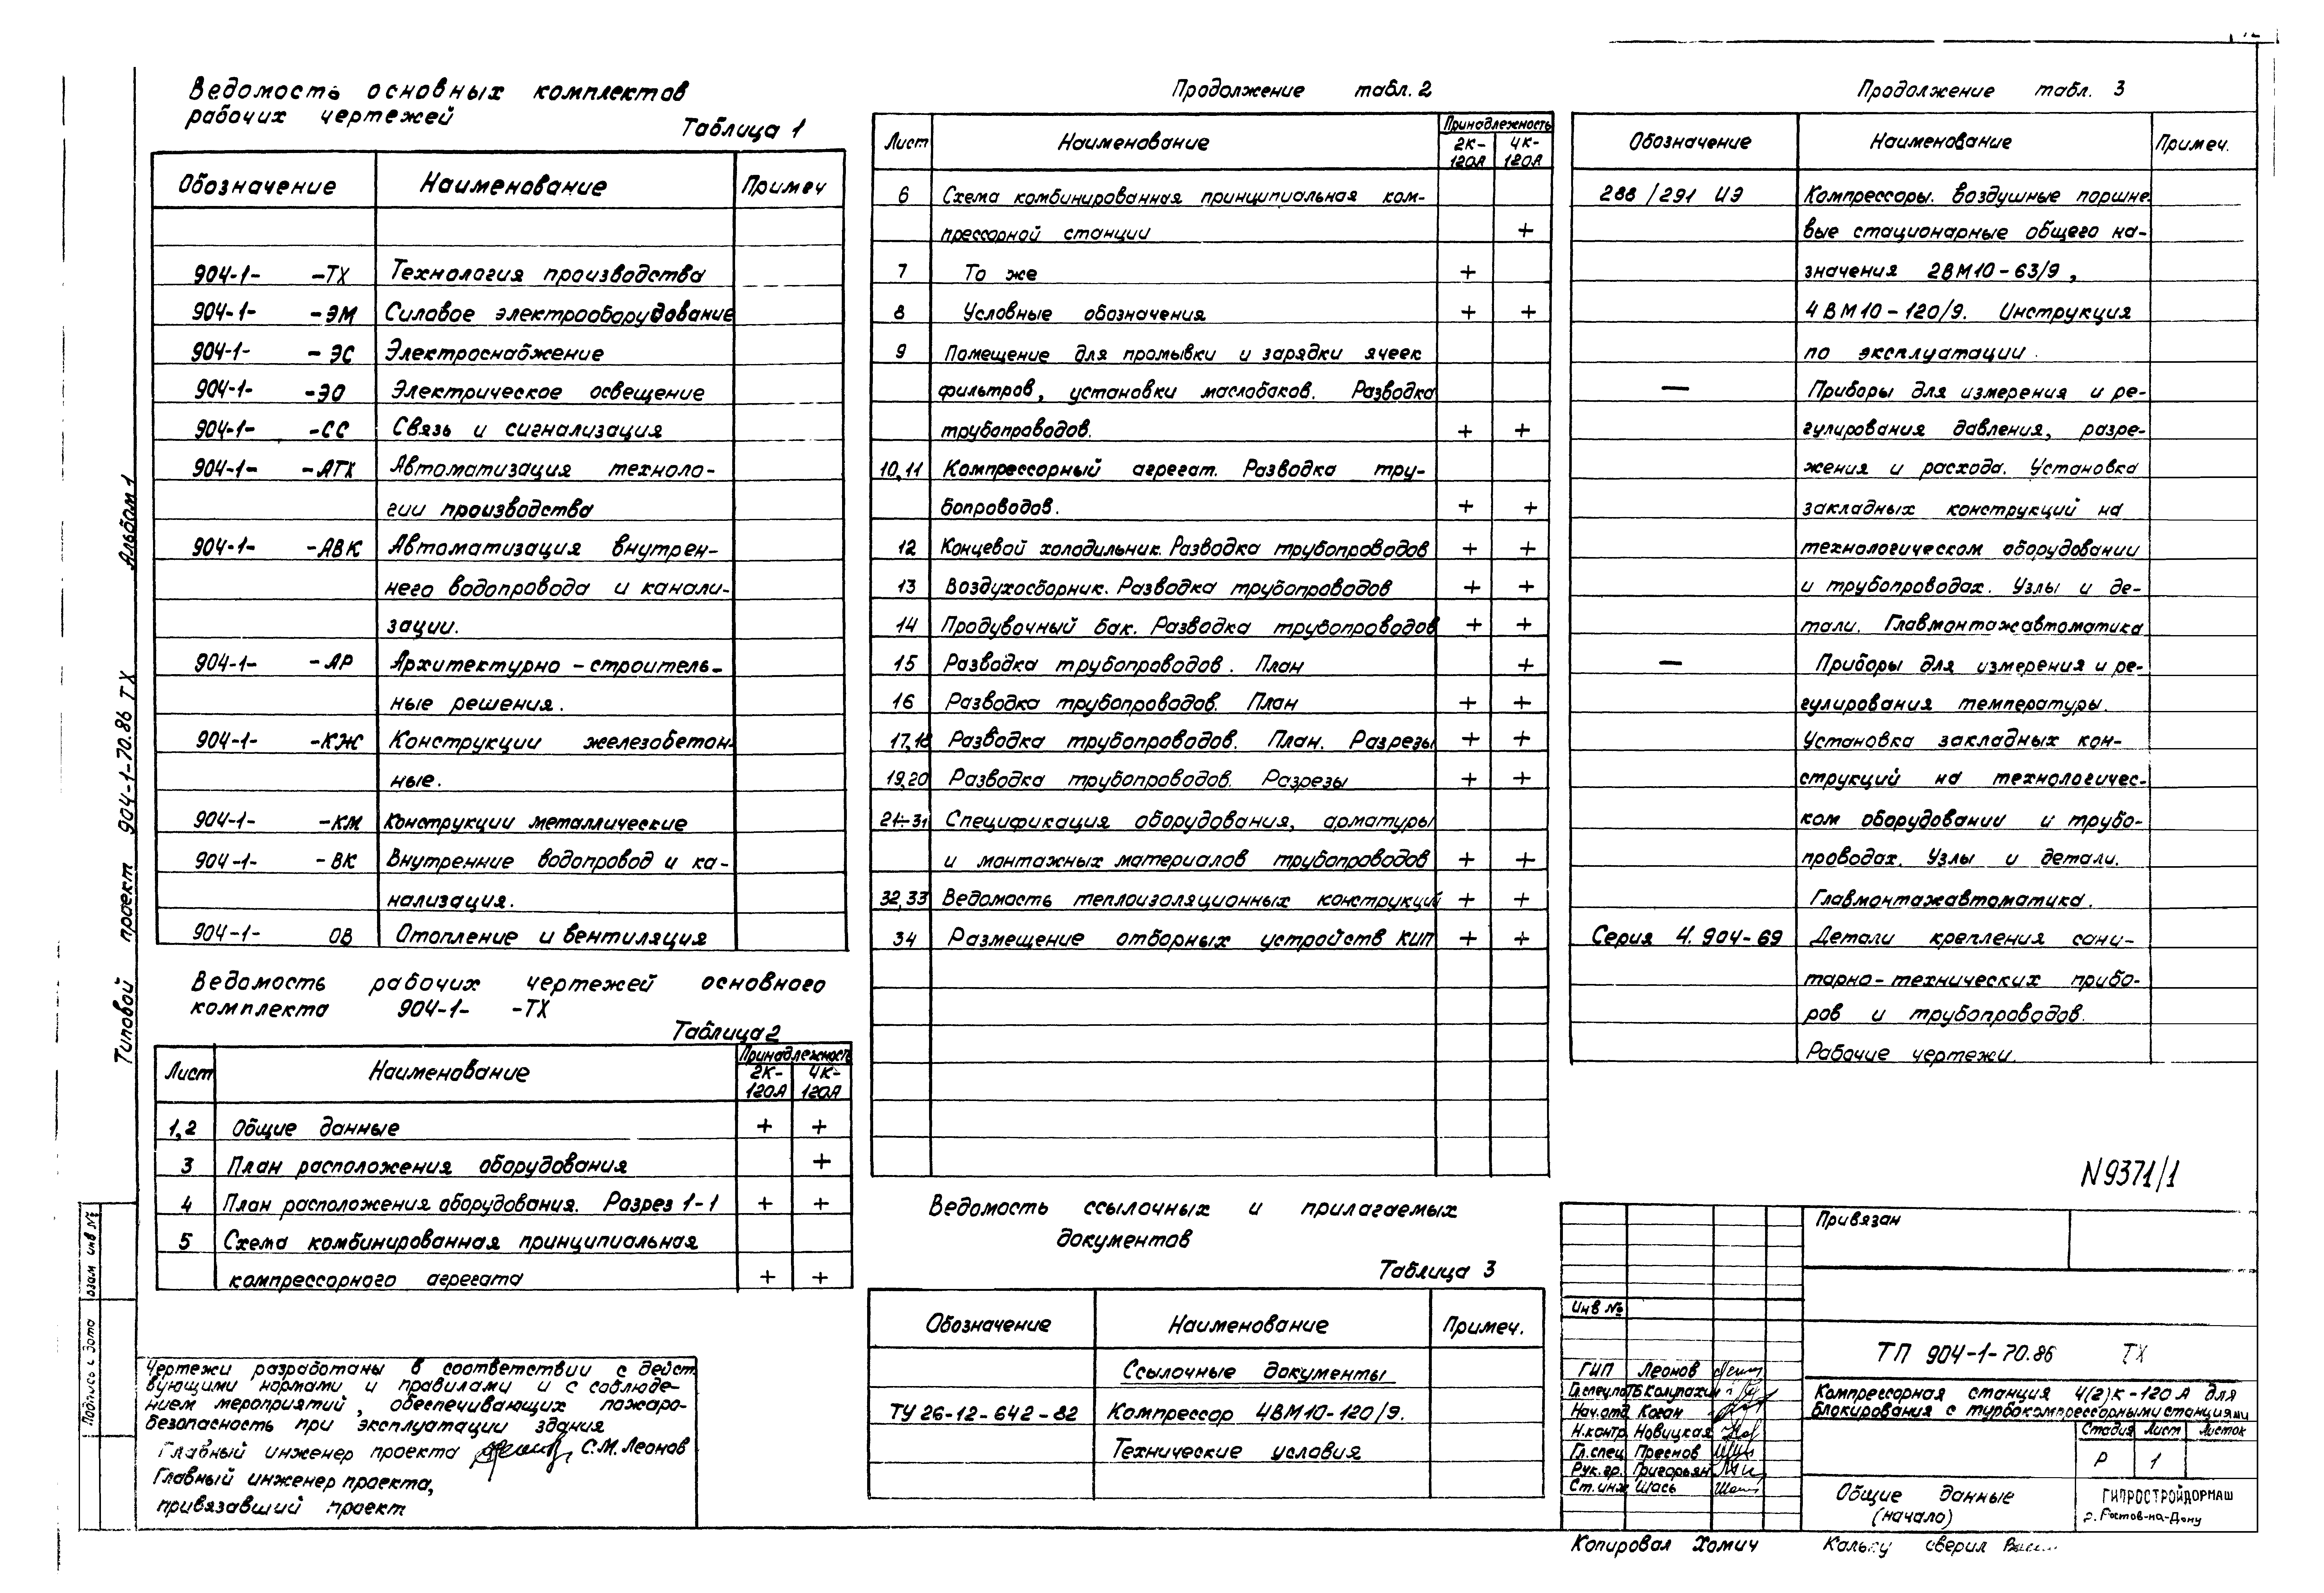 Ведомость основных комплектов
рабочих чертежей
Таблица 1
Обозначение Наименование Примеч
904-1- -ТХ Технология производства
904-1- -ЭМ Силовое электрооборудование
904-1- -ЭС Электроснабжение
904-1- -ЭО Электрическое освещение
904-1- -СС Связь и сигнализация
904-1- -АТХ Автоматизация техноло-
гии производства
904-1- -АВК Автоматизация внутрен-
него водопровода и канали-
зации.
904-1- -АР Архитектурно-строитель-
ные решения.
904-1- -КЖ Конструкции железобетон-
ные.
904-1- -КМ Конструкции металлические
904-1- -ВК Внутренние водопровод и ка-
нализация.
904-1- ОВ Отопление и вентиляция
Ведомость рабочих чертежей основного
комплекта 904-1- -ТХ
Таблица 2
Лист Наименование Принадлежность
2К-120А 4К-120А
1,2 Общие данные + +
3 План расположения оборудования +
4 План расположения оборудования. Разрез 1-1 + +
5 Схема комбинированная принципиальная
компрессорного агрегата + +
Чертежи разработаны в соответствии с дейст
вующими нормами и правилами и с соблюде-
нием мероприятий, обеспечивающих пожаро-
безопасность при эксплуатации здания
Главный инженер проекта С.М. Леонов
Главный инженер проекта,
привязавший проект
Продолжение табл. 2
Лист Наименование Принадлежность
2К-120А 4К-120А
6 Схема комбинированная принципиальная ком-
прессорной станции +
7 То же +
8 Условные обозначения + +
9 Помещение для промывки и зарядки ячеек
фильтров, установки маслобаков. Разводка
трубопроводов. + +
10,11 Компрессорный агрегат. Разводка тру-
бопроводов. + +
12 Концевой холодильник. Разводка трубопроводов + +
13 Воздухосборник. Разводка трубопроводов + +
14 Продувочный бак. Разводка трубопроводов + +
15 Разводка трубопроводов. План +
16 Разводка трубопроводов. План + +
17,18 Разводка трубопроводов. План. Разрезы + +
19,20 Разводка трубопроводов. Разрезы + +
21÷31 Спецификация оборудования, арматуры
и монтажных материалов трубопроводов + +
32,33 Ведомость теплоизоляционных конструкций + +
34 Размещение отборных устройств КИП + +
Ведомость ссылочных и прилагаемых
документов
Таблица 3
Обозначение Наименование Примеч.
Ссылочные документы
ТУ 26-12-642-82 Компрессор 4ВМ10-120/9.
Технические условия
Продолжение табл. 3
Обозначение Наименование Примеч.
288/291 ИЭ Компрессоры. Воздушные поршне-
вые стационарные общего на-
значения 2ВМ10-63/9,
4ВМ10-120/9. Инструкция
по эксплуатации.
— Приборы для измерения и ре-
гулирования давления, разре-
жения и расхода. Установка
закладных конструкций на
технологическом оборудовании
и трубопроводах. Узлы и де-
тали. Главмонтажавтоматика
— Приборы для измерения и ре-
гулирования температуры.
Установка закладных кон-
струкций на технологичес-
ком оборудовании и трубо-
проводах. Узлы и детали.
Главмонтажавтоматика.
Серия 4.904-69 Детали крепления сани-
тарно-технических прибо-
ров и трубопроводов.
Рабочие чертежи.
N9371/1
Привязан
Инв №
ТП 904-1-70.86 ТХ
ГИП Леонов
Гл.спец.по ТБ Колупахин
Нач.отд Коган
Н.контр. Новицкая
Гл.спец Преснов
Рук.гр. Григорьян
Ст.инж Шась
Компрессорная станция 4(2)К-120А для
блокирования с турбокомпрессорными станциями
Стадия Лист Листов
Р 1
Общие данные
(начало)
ГИПРОСТРОЙДОРМАШ
г. Ростов-на-Дону
Копировал Хомич Кальку сверил
Типовой проект 904-1-70.86 ТХ Альбом 1
Подпись и дата Взам инв №